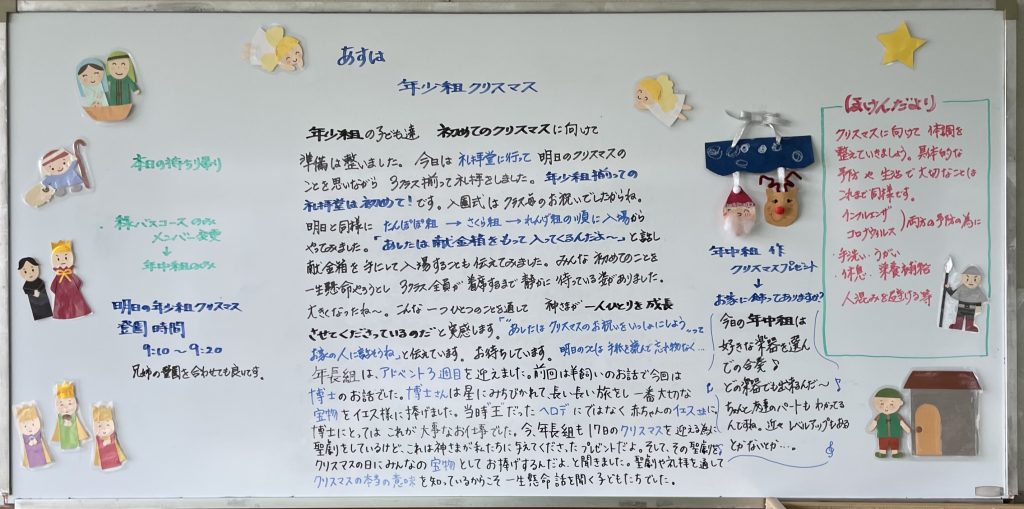 あすは
年少組クリスマス
本日の持ち帰り
森バスコースのみ
メンバー変更
→ 年中組のみ
明日の年少組クリスマス
登園時間
9:10〜9:20
兄姉の登園を合わせても良いです。
年少組の子ども達 初めてのクリスマスに向けて
準備は整いました。今日は礼拝堂に行って明日のクリスマスの
ことを思いながら 3クラス揃って礼拝をしました。年少組揃っての
礼拝堂は初めて!です。入園式はクラス毎のお祝いでしたからね。
明日と同様に たんぽぽ組→さくら組→れんげ組の順に入場から
やってみました。「あしたは献金箱をもって入ってくるんだよ〜」と話し
献金箱を手にして入場することも伝えてみました。みんな初めてのことを
一生懸命やろうとし 3クラス全員が着席するまで静かに待っている姿がありました。
大きくなったね〜。こんな一つひとつのことを通して 神さまが一人ひとりを成長
させてくださっているのだと実感します。「"あしたはクリスマスのお祝いをいっしょにしよう"って
お家の人に話そうね。」と伝えています。お待ちしています。明日のことは手紙を読んで忘れ物なく…
年長組は、アドベント3週目を迎えました。前回は羊飼いのお話で今回は
博士のお話でした。博士さんは星にみちびかれて、長い長い旅をし 一番大切な
宝物をイエス様に捧げました。当時"王"だったヘロデにではなく赤ちゃんのイエス様に
博士にとっては これが大事なお仕事でした。今、年長組も17日のクリスマスを迎える為に
聖劇をしているけど、これは神さまが私たちに与えてくださったプレゼントだよ。そして、その聖劇を
クリスマスの日にみんなの宝物としてお捧げするんだよ。と聞きました。聖劇や礼拝を通して
クリスマスの本当の意味を知っているからこそ 一生懸命話を聞く子どもたちでした。
年中組 作
クリスマスプレゼント
↓
お家に飾ってありますか?
今日の年中組は
好きな楽器を選ん
での合奏♪
どの楽器でも出来るんだ〜♪
ちゃんと友達のパートもわかってる
んですね。近々レベルアップもある
とかないとか…。
ほけんだより
クリスマスに向けて 体調を
整えていきましょう。具体的な
予防や生活で大切なことは
これまで同様です。
インフルエンザ
コロナウィルス 両方の予防の為に
・手洗い・うがい
・休息・栄養補給
・人混みを避ける等